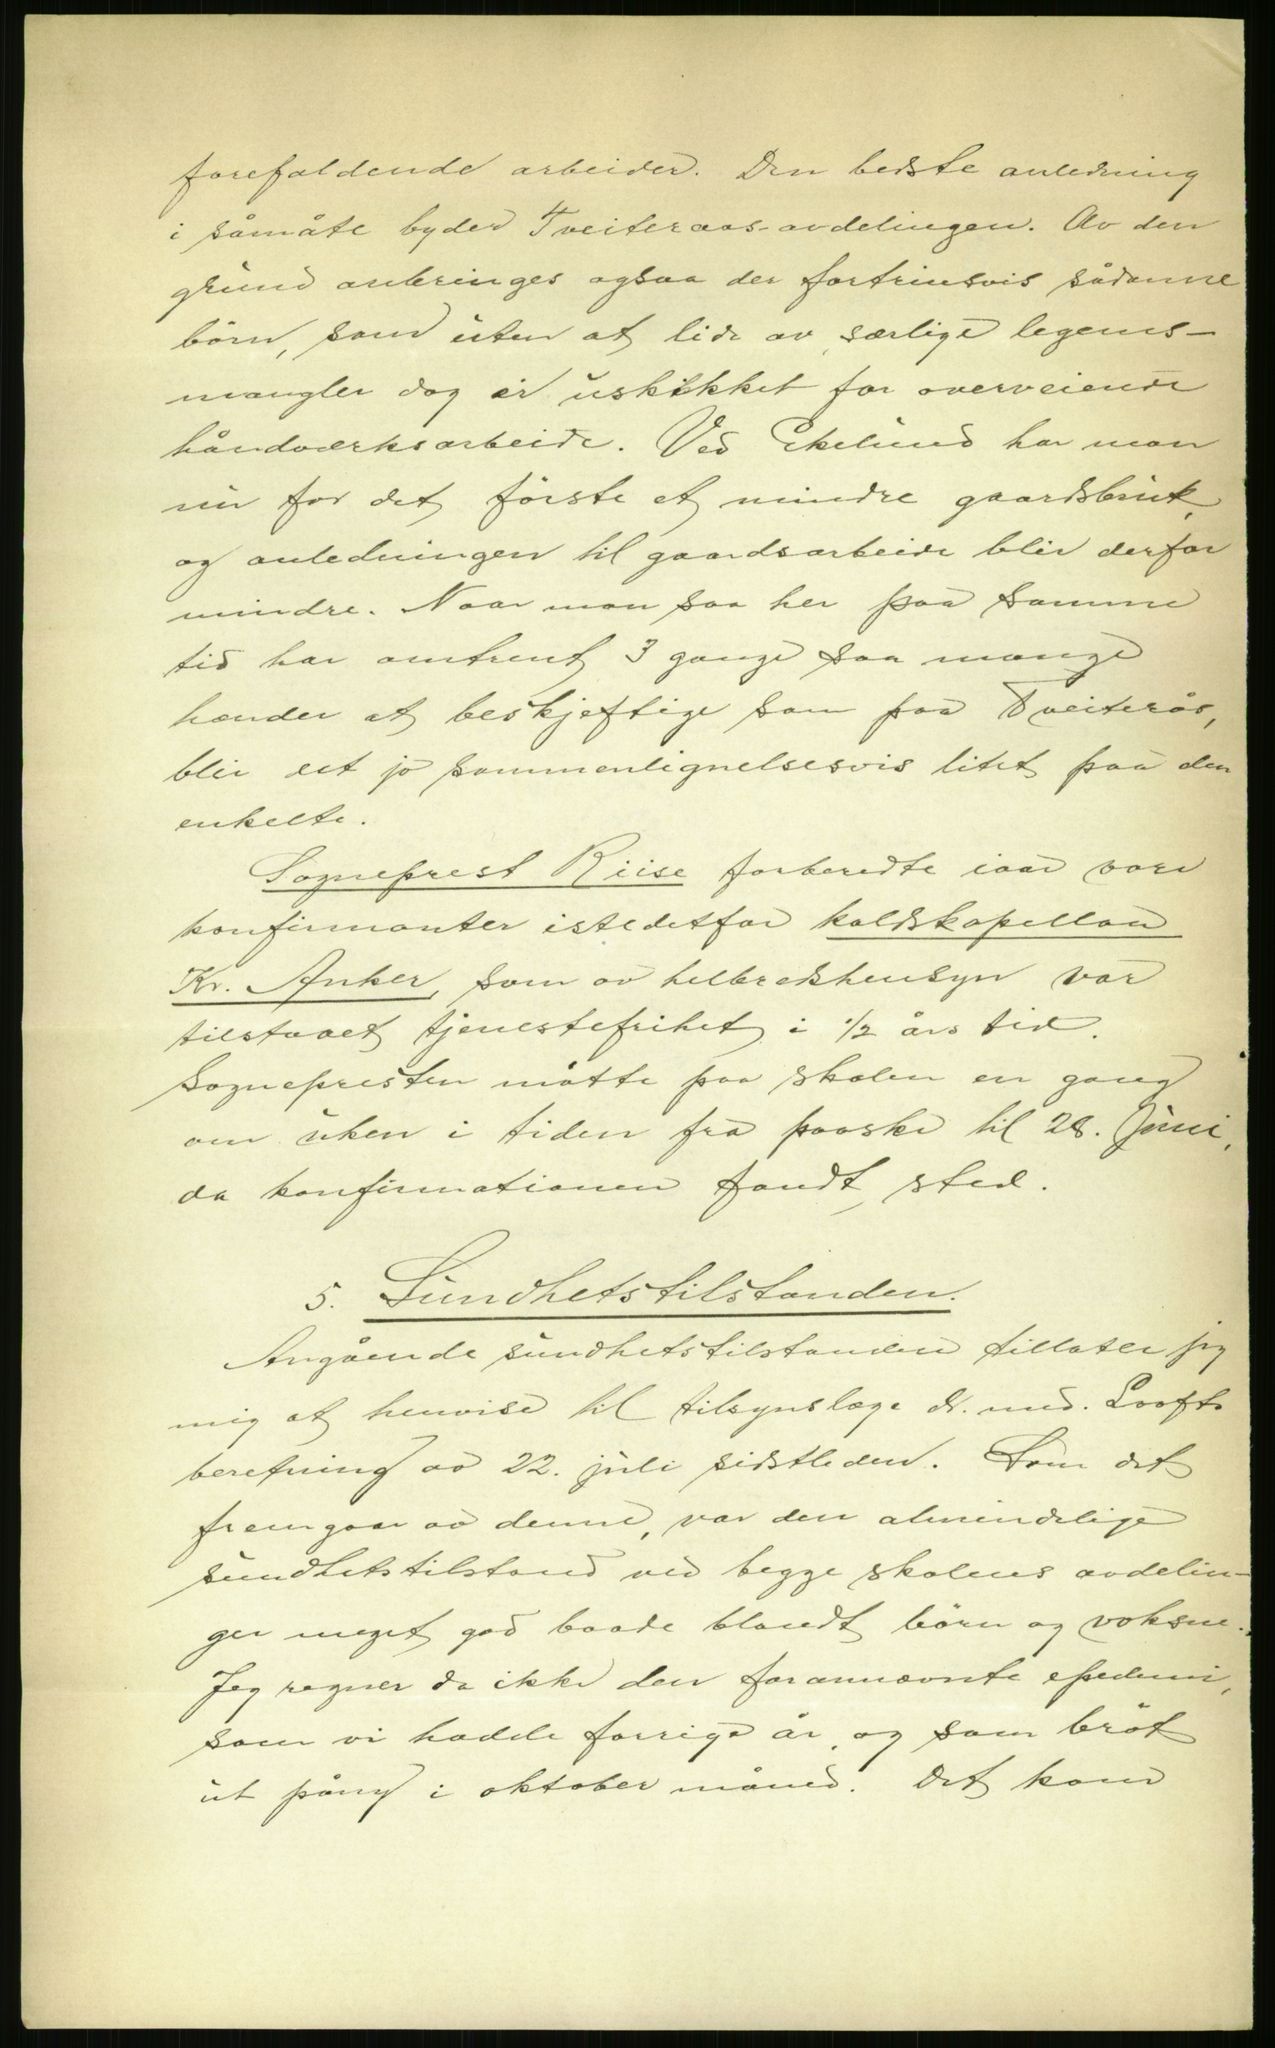 forefaldende arbeider. Den bedste anledning
i såmåte byder Tveiteraas-avdelingen. Av den
grund anbringes ogsaa der fortrinsvis sådanne
børn, som uten at lide av særlige legems-
mangler dog er uskikket for overveiende
håndverksarbeide. Ved Ekelund har man
nu for det første et mindre gaardsbruk,
og anledningen til gaardsarbeide blir derfor
mindre. Naar man saa her paa samme
tid har omtrent 3 gange saa mange
hænder at beskjeftige som paa Tveiterås,
blir det jo sammenlignelsesvis litet paa den
enkelte.
Sogneprest Riise forberedte iaar vore
konfirmanter istedetfor kaldskapellan
Kr. Anker, som av helbredshensyn var
tilstaaet tjenestefrihet i 1/2 års tid.
Sognepresten måtte paa skolen en gang
om uken i tiden fra paaske til 28. juni,
da konfirmationen fandt sted.
5. Sundhetstilstanden.
Angående sundhetstilstanden tillater jeg
mig at henvise til tilsynslæge dr. med. Looft's
beretning av 22. juli sidstleden. Som det
fremgaar av denne, var den almindelige
sundhetstilstand ved begge skolens avdelin-
ger meget god baade blandt børn og voksne.
Jeg regner da ikke den forannævnte epedemi,
som vi hadde forrige år, og som brøt
ut påny i oktober måned. Det kom